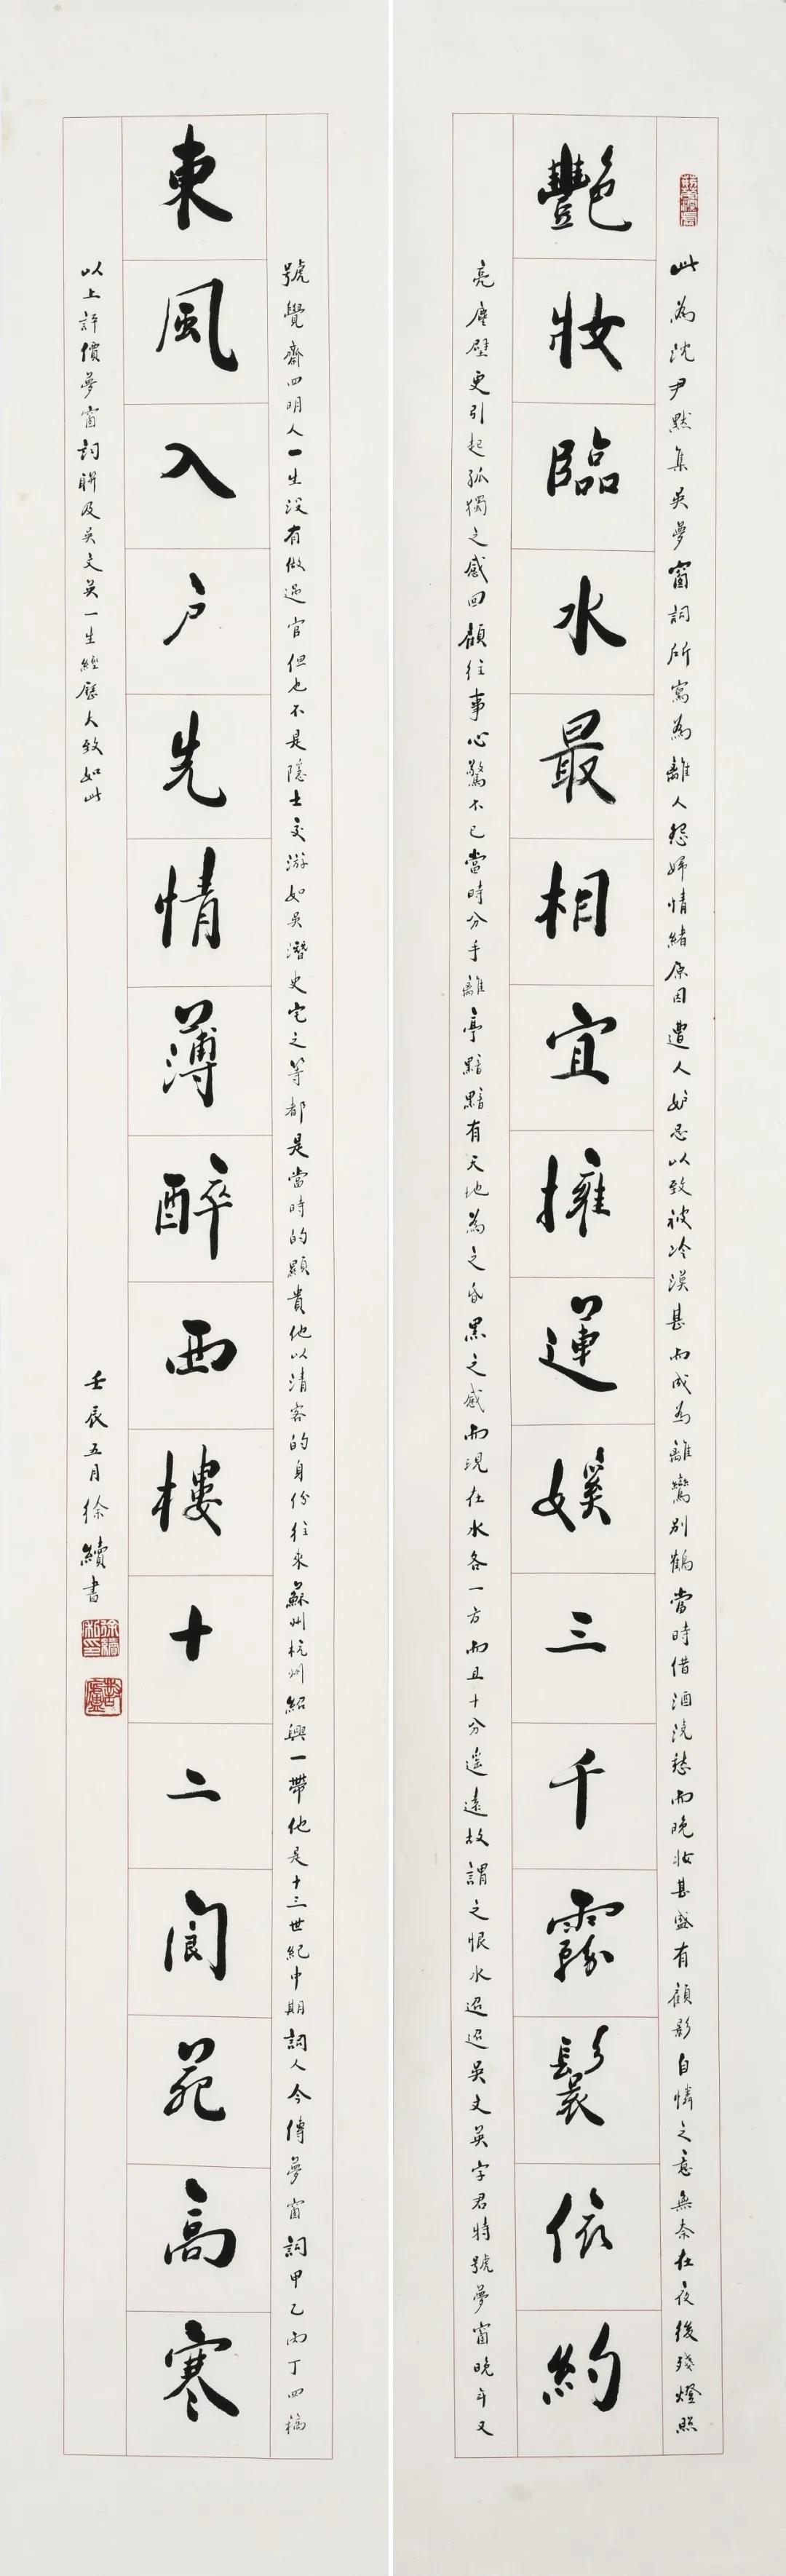 艷妝臨水最相宜擁蓮媄三千霧鬟依約
東風入戶先情薄醉西樓十二閬苑高寒
此為沈尹默集吳夢窗詞所寫為離人怨婦情緒原因遭人妒忌以致被冷漠甚而成為離鸞別鶴當時借酒澆愁而晚妝甚盛有顧影自憐之意無奈在夜後殘燈照
亮塵壁更引起孤獨之感回顧往事心驚不已當時分手離亭黯黯有天地為之昏黑之感而現在水各一方而且十分遙遠故謂之恨水迢迢吳文英字君特號夢窗晚年又
號覺齋四明人一生沒有做過官但也不是隱士交游如吳潛史宅之等都是當時的顯貴他以清客的身份往來蘇州杭州紹興一帶他是十三世紀中期詞人今傳夢窗詞甲乙丙丁四稿
以上評價夢窗詞聯及吳文英一生經歷大致如此
壬辰五月徐續書